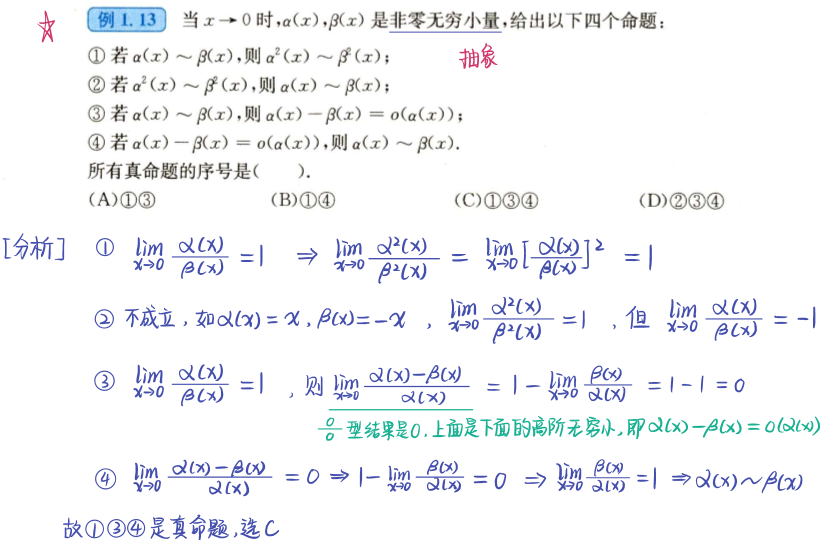 ☆ 例 1.13 当 x→0 时,α(x),β(x) 是非零无穷小量,给出以下四个命题:
① 若 α(x) ~ β(x),则 α²(x) ~ β²(x); 抽象
② 若 α²(x) ~ β²(x),则 α(x) ~ β(x);
③ 若 α(x) ~ β(x),则 α(x) − β(x) = o(α(x));
④ 若 α(x) − β(x) = o(α(x)),则 α(x) ~ β(x).
所有真命题的序号是( ).
(A)①③ (B)①④ (C)①③④ (D)②③④
[分析] ① lim x→0 α(x)/β(x) = 1 ⇒ lim x→0 α²(x)/β²(x) = lim x→0 [α(x)/β(x)]² = 1
② 不成立, 如 α(x) = x, β(x) = −x , lim x→0 α²(x)/β²(x) = 1 , 但 lim x→0 α(x)/β(x) = −1
③ lim x→0 α(x)/β(x) = 1 , 则 lim x→0 (α(x)−β(x))/α(x) = 1 − lim x→0 β(x)/α(x) = 1 − 1 = 0
0/0 型结果是0, 上面是下面的高阶无穷小, 即 α(x)−β(x) = o(α(x))
④ lim x→0 (α(x)−β(x))/α(x) = 0 ⇒ 1 − lim x→0 β(x)/α(x) = 0 ⇒ lim x→0 β(x)/α(x) = 1 ⇒ α(x) ~ β(x)
故①③④是真命题, 选C